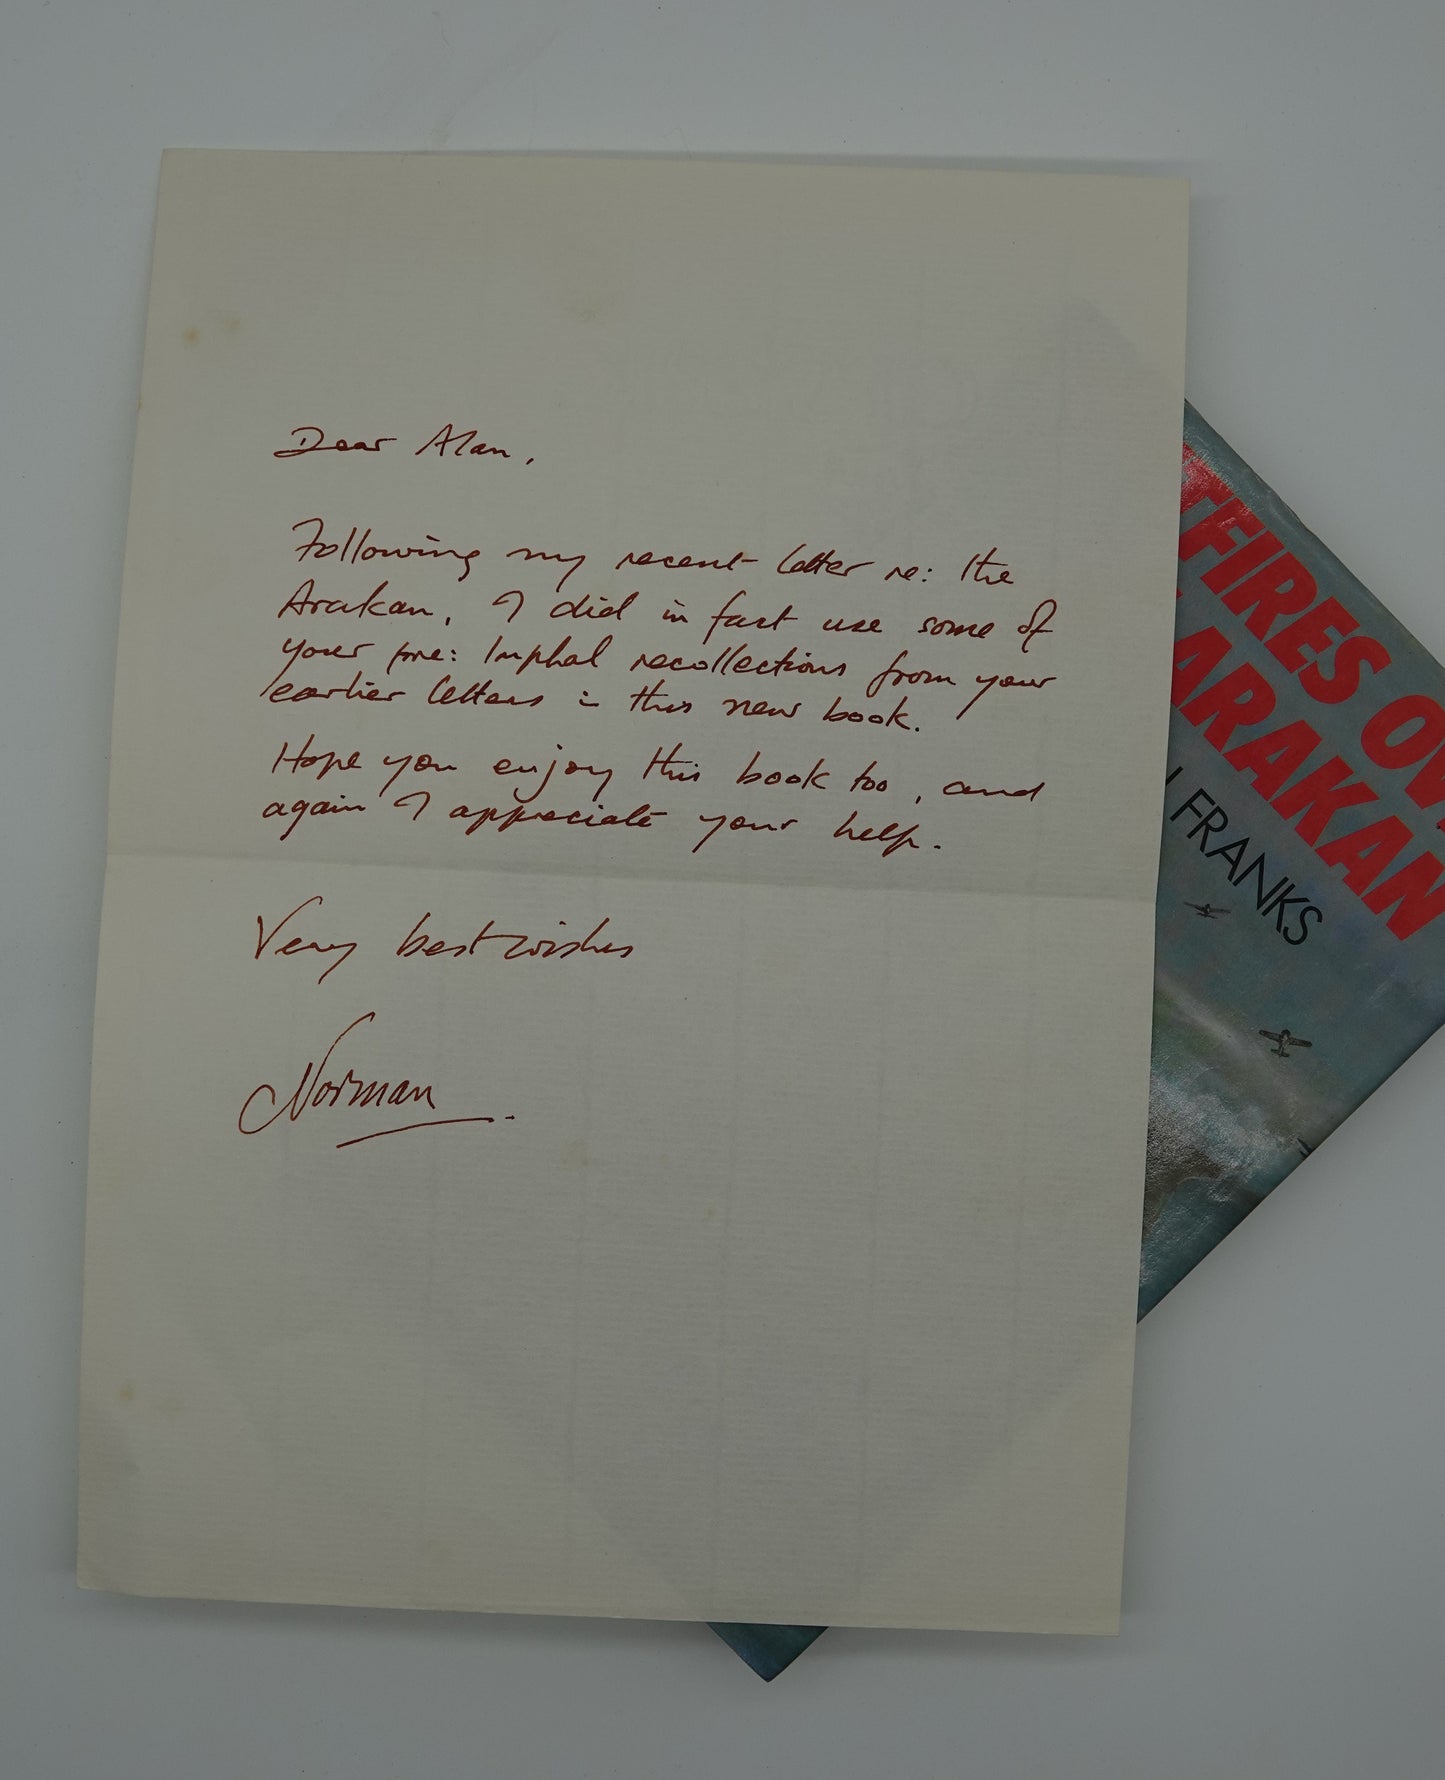 Dear Alan,
Following my recent letter re: the
Arakan, I did in fact use some of
your pre: Imphal recollections from your
earlier letters in this new book.
Hope you enjoy this book too, and
again I appreciate your help.
Very best wishes
Norman
TFIRES OV
ARAKAN
FRANKS